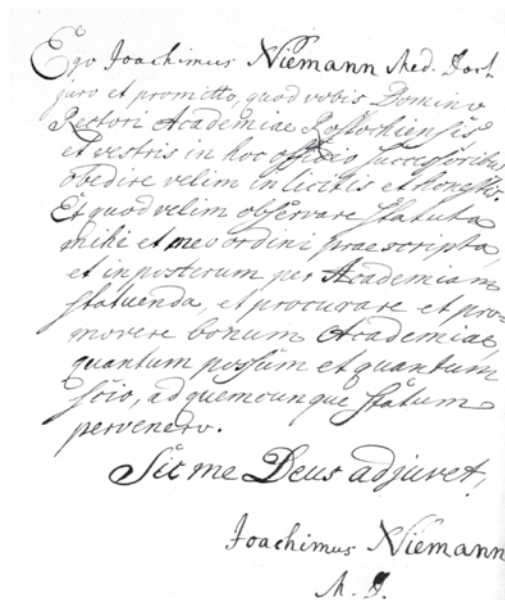 Ego Joachimus Niemann Med. Doct.
juro et promitto, quod vobis Domino
Rectori Academiae Rostochiensis
et vestris in hoc officio successoribus
obedire velim in licitis et honestis.
Et quod velim observare statuta
mihi et meo ordini praescripta,
et in posterum per Academiam
statuenda, et procurare et pro=
movere bonum Academiae,
quantum possum et quantum
scio, ad quemcunque statum
pervenero.
Sic me Deus adjuvet,
Joachimus Niemann
M. D.